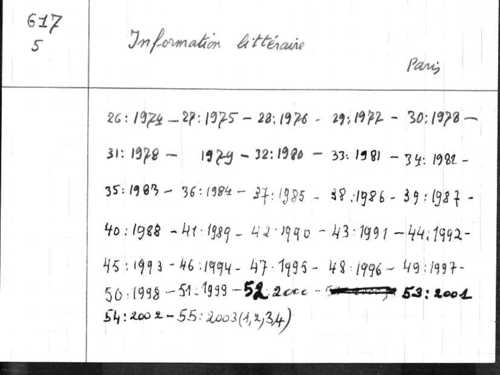 617
5
Information littéraire
Paris
26:1974 - 27:1975 - 28:1976 - 29:1977 - 30:1978 -
31:1978 - 1979 - 32:1980 - 33:1981 - 34:1982 -
35:1983 - 36:1984 - 37:1985 - 38:1986 - 39:1987 -
40:1988 - 41:1989 - 42:1990 - 43:1991 - 44:1992 -
45:1993 - 46:1994 - 47:1995 - 48:1996 - 49:1997 -
50:1998 - 51:1999 - 52:2000 - 53:2001
54:2002 - 55:2003 (1,2,3,4)